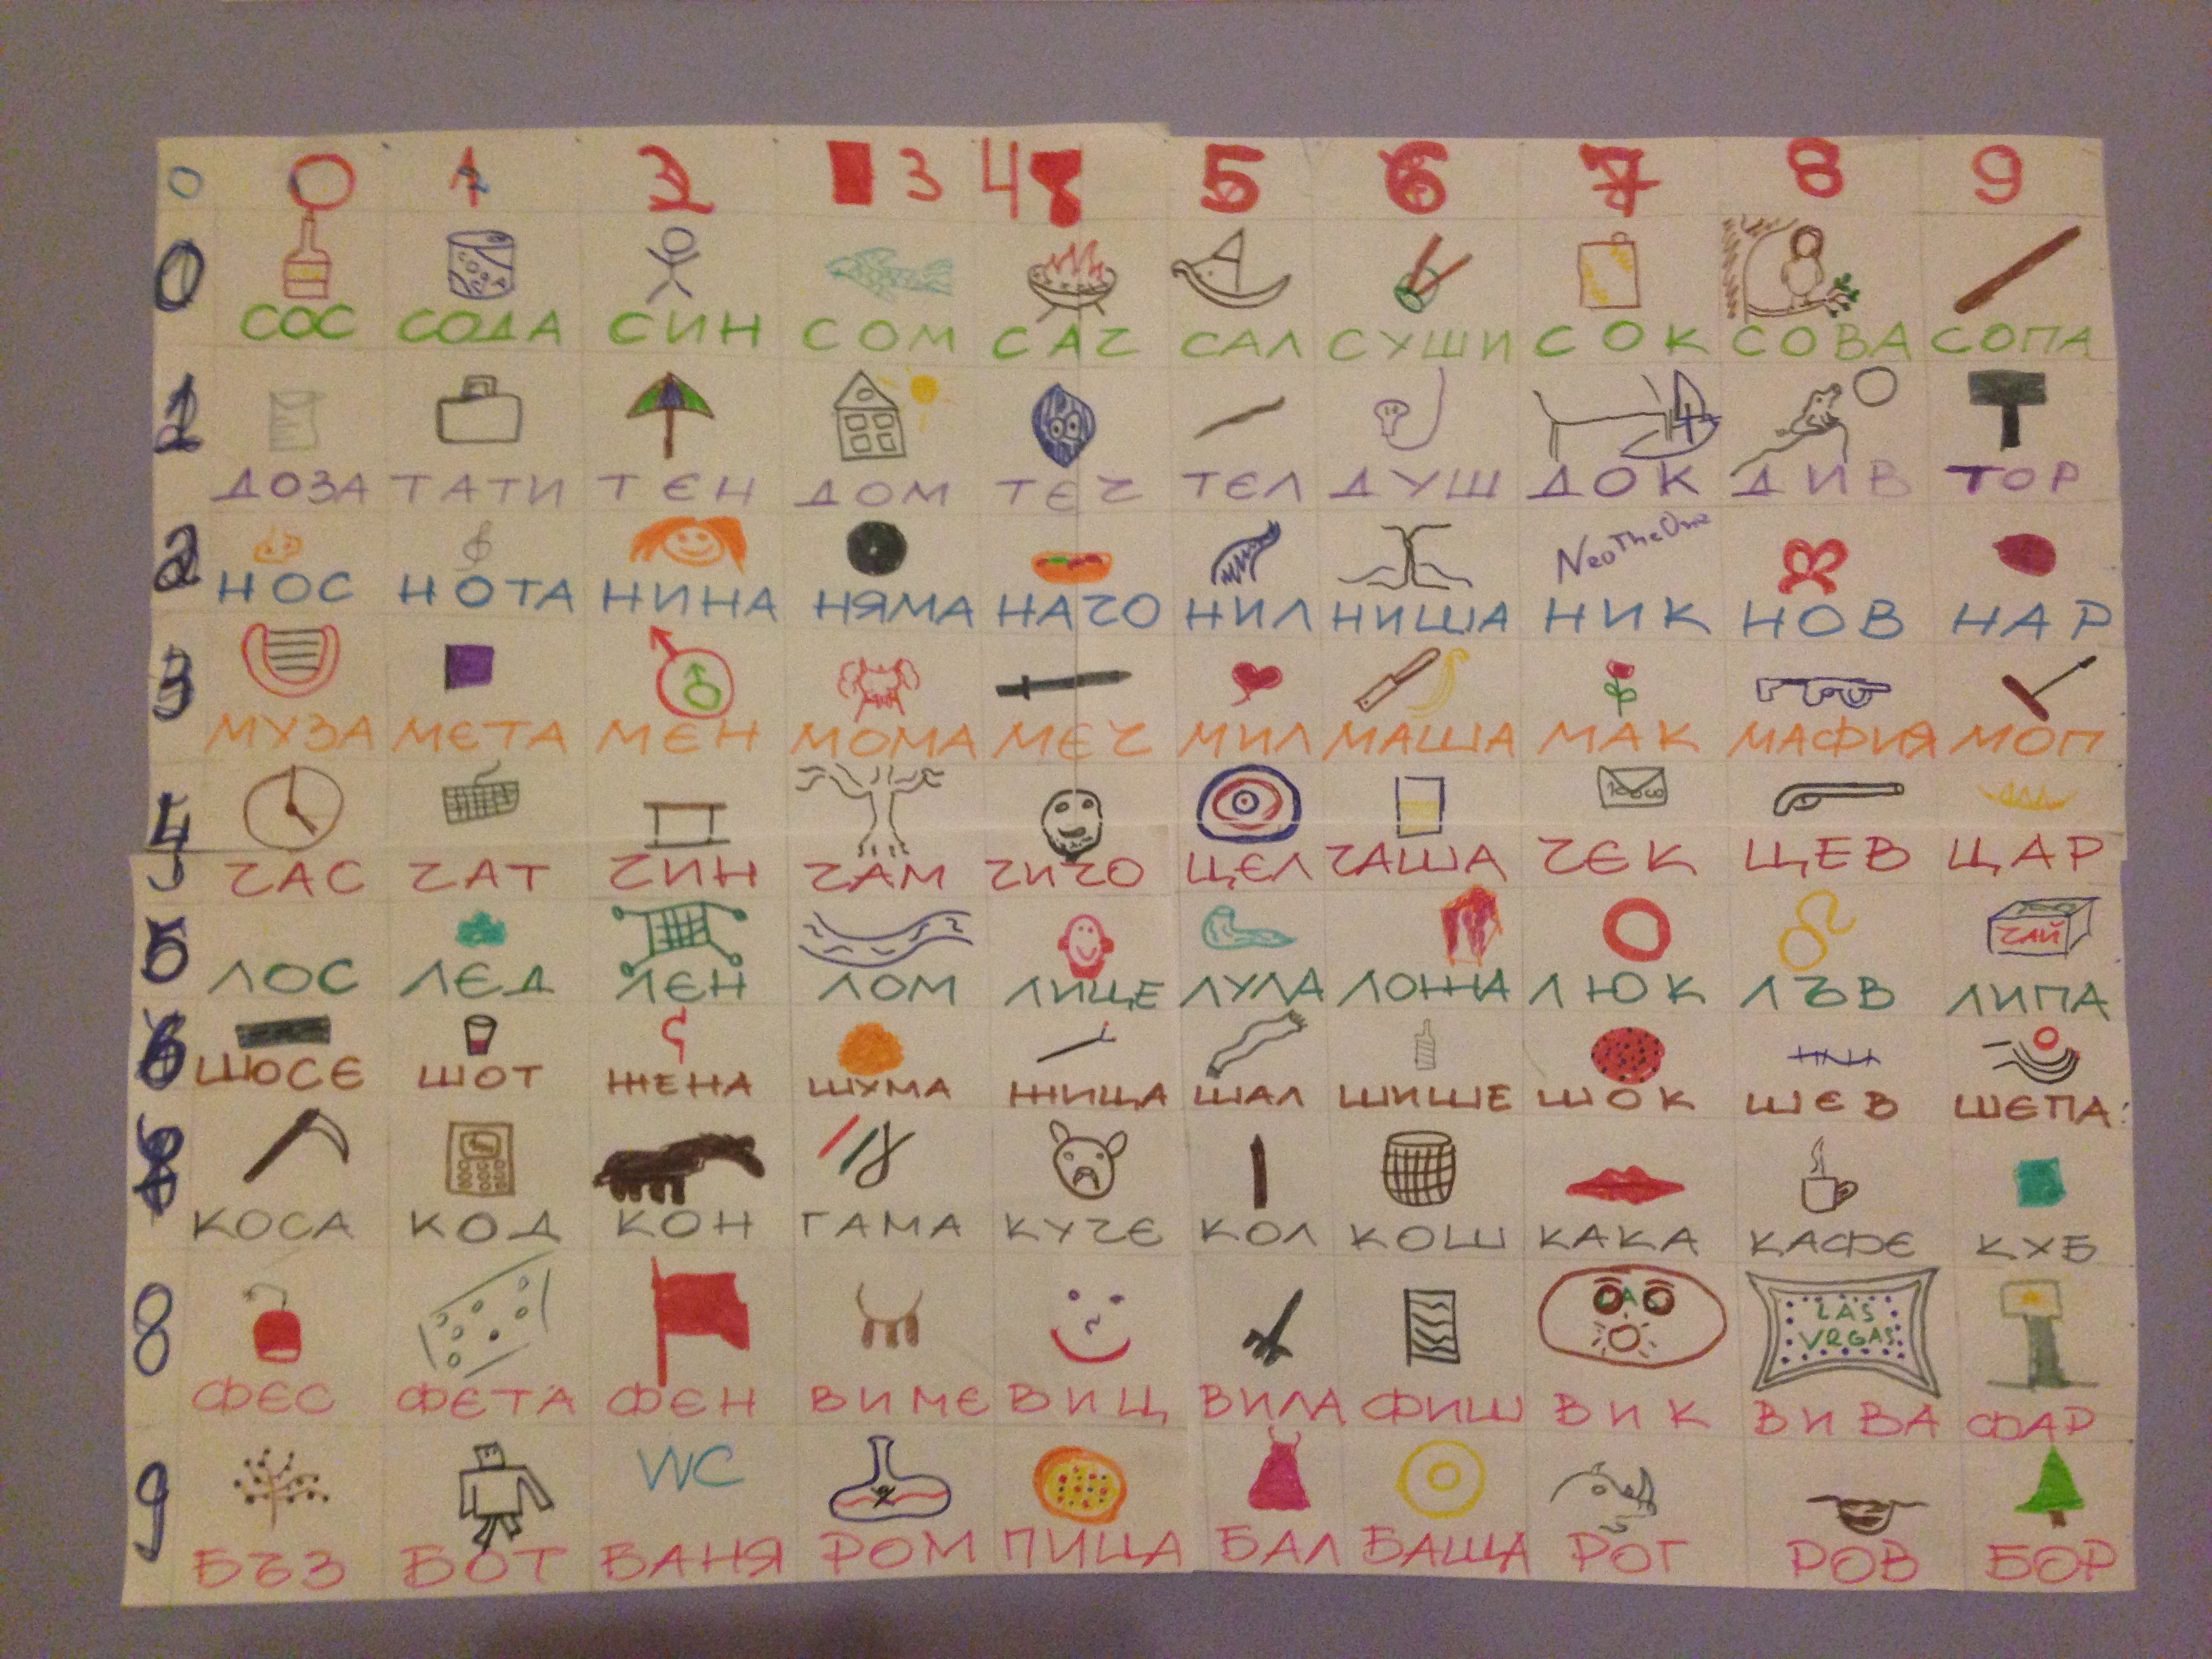 0 0 1 2 3 4 5 6 7 8 9
0 СОС СОДА СИН СОМ САЧ САЛ СУШИ СОК СОВА СОПА
1 ДОЗА ТАТИ ТЕН ДОМ ТЕЧ ТЕЛ ДУШ ДОК ДИВ ТОР
NeoTheOne
2 НОС НОТА НИНА НЯМА НАЧО НИЛ НИША НИК НОВ НАР
3 МУЗА МЕТА МЕН МОМА МЕЧ МИЛ МАША МАК МАФИЯ МОП
4 ЧАС ЧАТ ЧИН ЧАМ ЧИЧО ЦЕЛ ЧАША ЧЕК ЦЕВ ЦАР
ЧАЙ
5 ЛОС ЛЕД ЛЕН ЛОМ ЛИЦЕ ЛУЛА ЛОЖА ЛЮК ЛЪВ ЛИПА
6 ШОСЕ ШОТ ЖЕНА ШУМА ЖИЦА ШАЛ ШИШЕ ШОК ШЕВ ШЕПА
КОСА КОД КОН ГАМА КУЧЕ КОЛ КОШ КАКА КАФЕ КУБ
LAS
VEGAS
8 ФЕС ФЕТА ФЕН ВИМЕ ВИЦ ВИЛА ФИШ ВИК ВИВА ФАР
WC
9 БЪЗ БОТ БАНЯ РОМ ПИЦА БАЛ БАЩА РОГ РОВ БОР